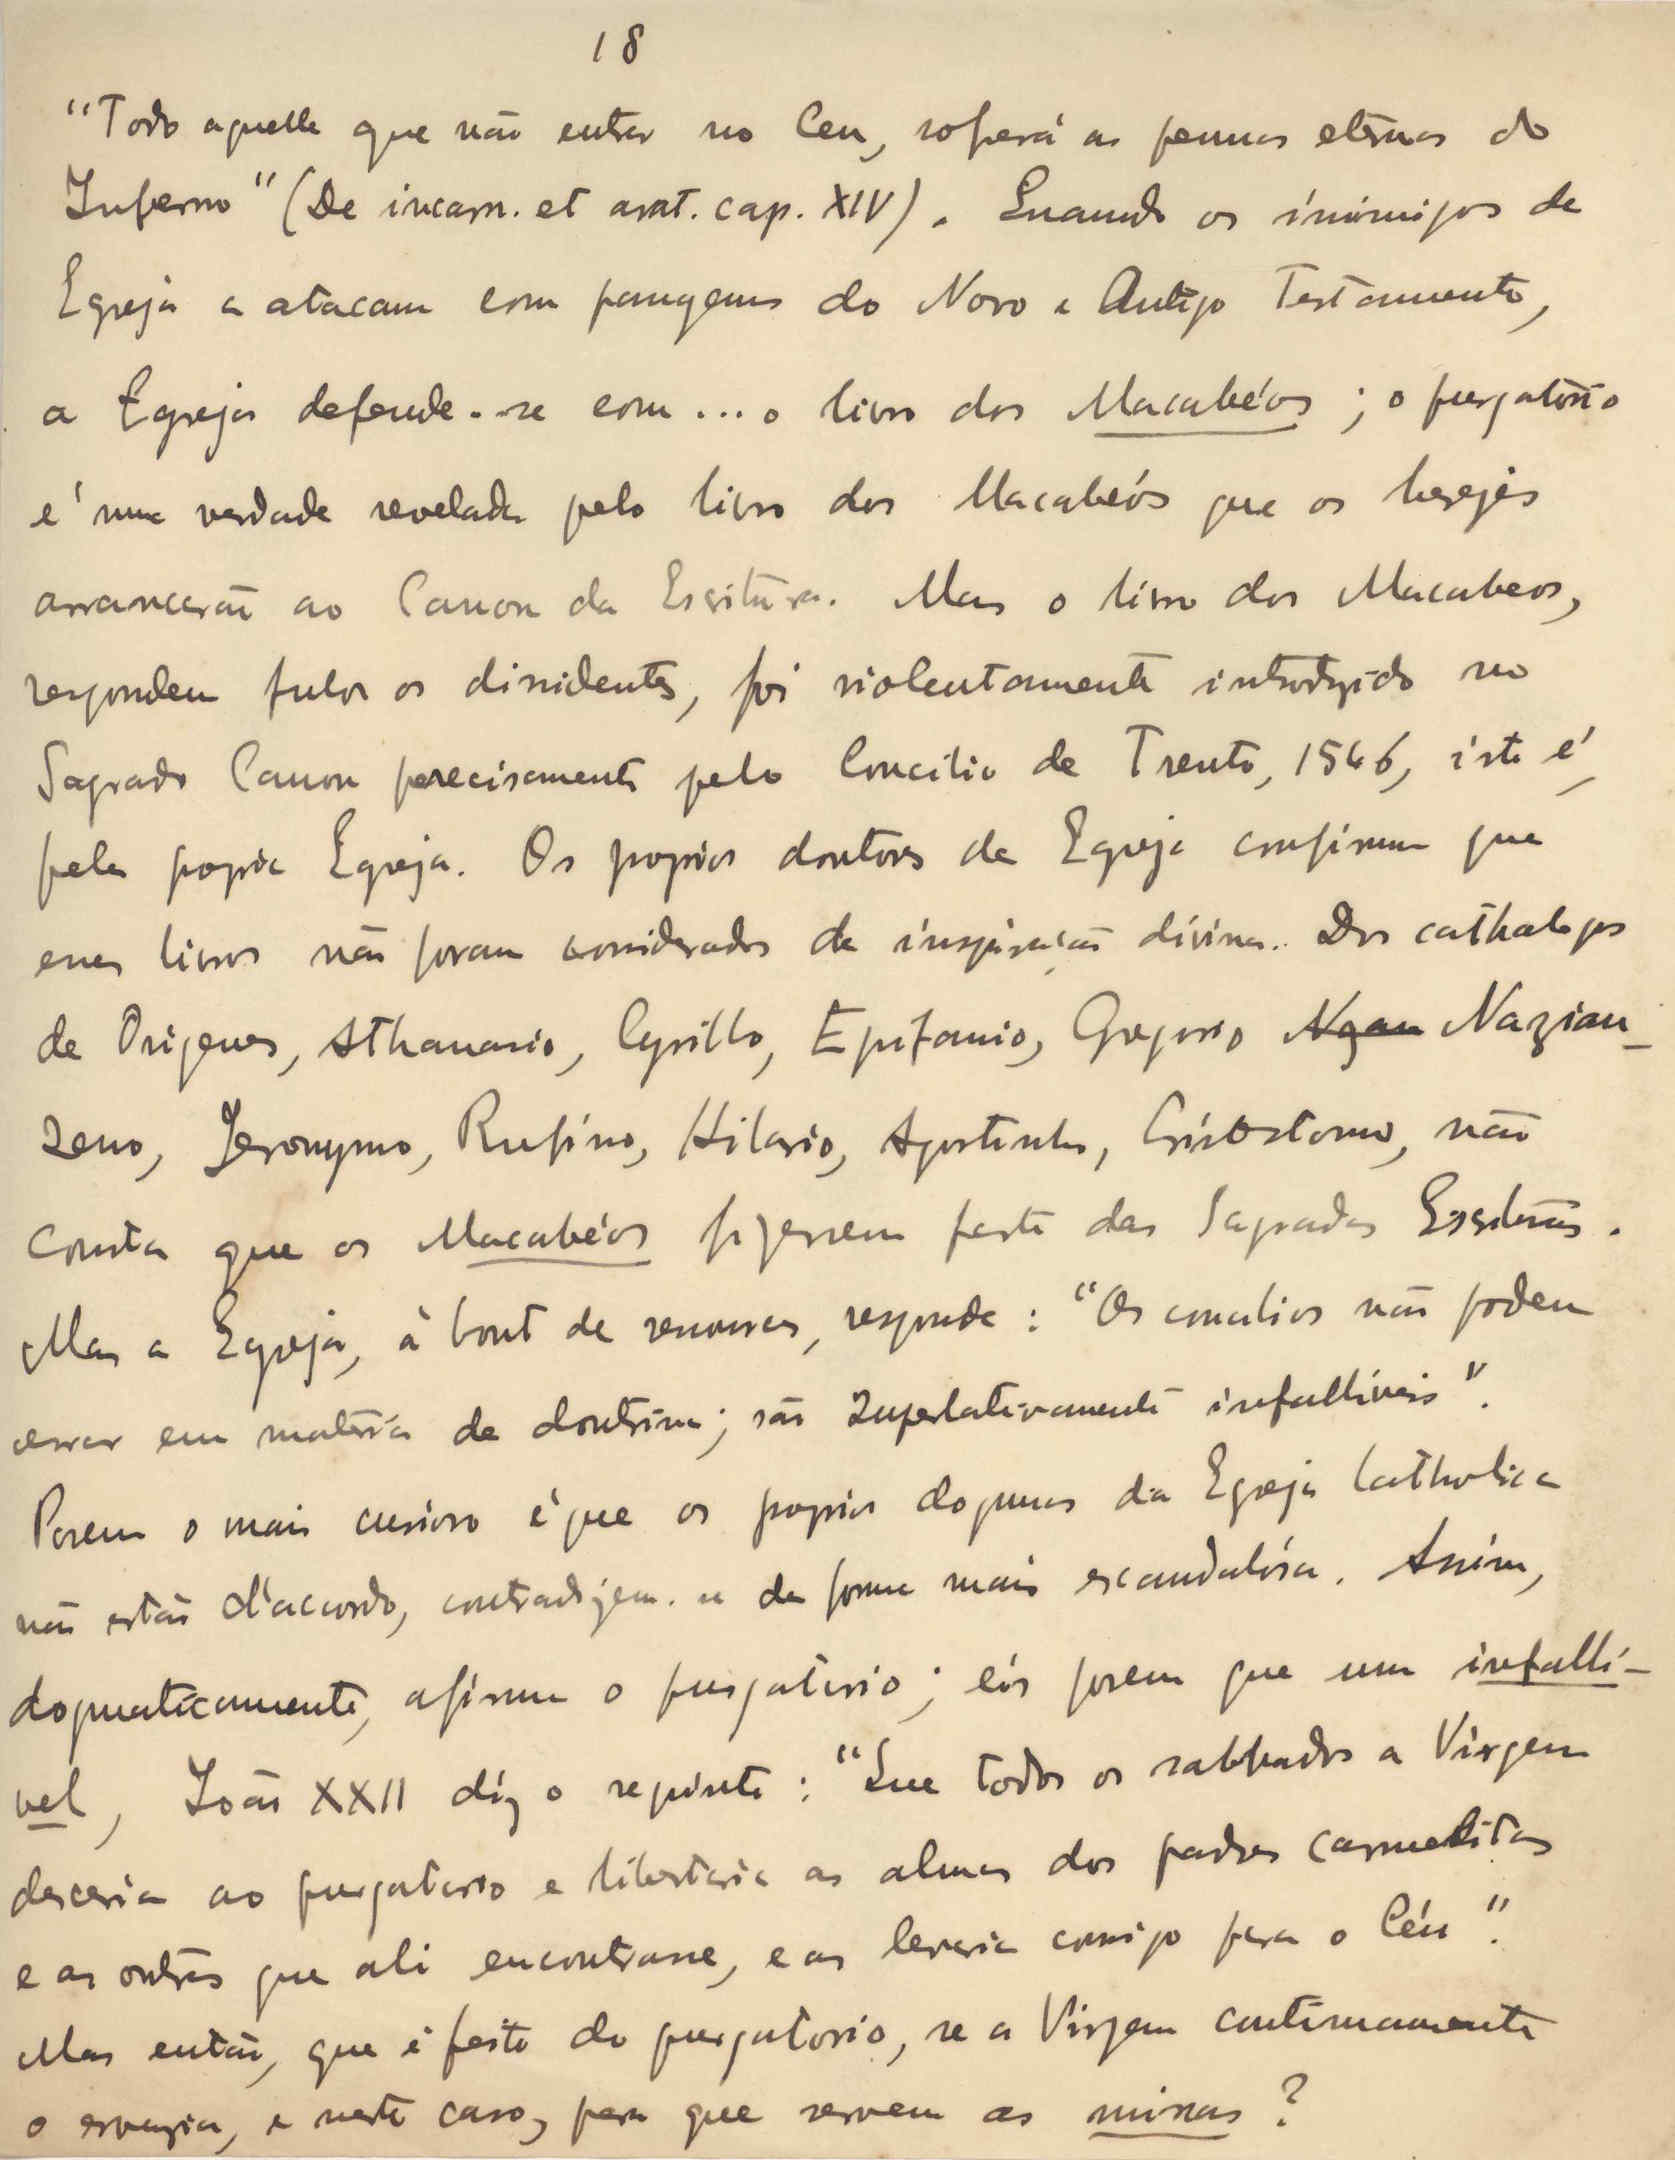 18
"Todo aquelle que não entrar no Ceu, soferá as pennas eternas do
Inferno" (De incarn. et arat. cap. XIV). Quando os inimigos da
Egreja a atacam com passagens do Novo e Antigo Testamento,
a Egreja defende-se com... o livro dos Macabéos; o purgatório
é uma verdade revelada pelo livro dos Macabeós que os herejes
arrancarão ao Canon da Escritura. Mas o livro dos Macabeos,
respondem todos os dissidentes, foi violentamente introduzido no
Sagrado Canon precisamente pelo Concilio de Trento, 1546, isto é,
pela propria Egreja. Os proprios doutores da Egreja confirmam que
esses livros não foram considerados de inspiração divina. Dos cathalogos
de Origenes, Athanasio, Cyrillo, Epifanio, Gregorio Ngan Nazian-
zeno, Jeronymo, Rufino, Hilario, Agostinho, Crisostomo, não
consta que os Macabéos fizessem parte das Sagradas Escrituras.
Mas a Egreja, à bout de ressources, responde: "Os concilios não podem
errar em matéria de doutrina; são superlativamente infalliveis".
Porem o mais curioso é que os proprios dogmas da Egreja Catholica
não estão d'accordo, contradizem-se da forma mais escandalósa. Assim,
dogmaticamente, afirma o purgatorio; eis porem que um infalli-
vel, João XXII diz o seguinte: "Que todos os sabbados a Virgem
desceria ao purgatorio e libertaria as almas dos padres carmelitas
e as outras que ali encontrasse, e as levaria comsigo para o Céu".
Mas então, que é feito do purgatorio, se a Virgem continuamente
o esvazia, e neste caso, para que servem as missas?